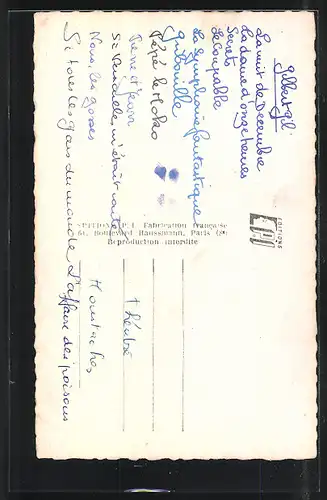 Gilbert Gil
La nuit de Décembre
La dame d'onze heures
Secrets
Le coupable
La Symphonie fantastique
Gribouille
Pépé le Moko
Pierre et Jean
Si Versailles m'était conté
Nous les gosses
Si tous les gars du monde L'affaire des poisons
théâtre
EDITIONS P.I. Fabrication française
Boulevard Haussmann, Paris
Reproduction interdite
EDITIONS
PI